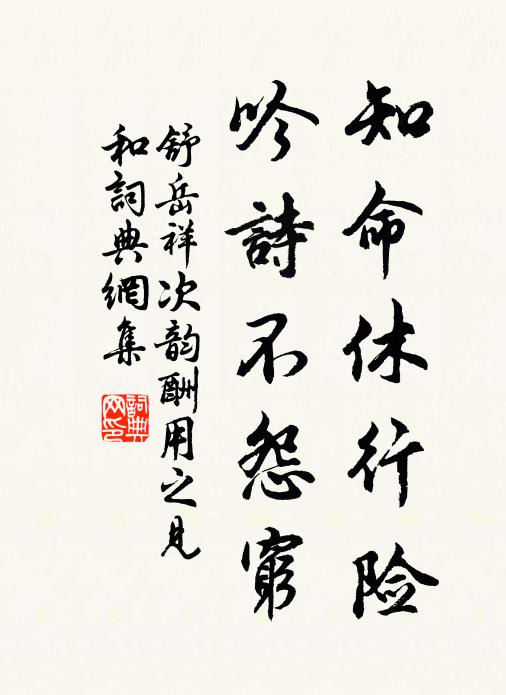 知命休行险
吟詩不怨窮
舒岳祥次韵酬用之见
和詞典網集
詞典网印